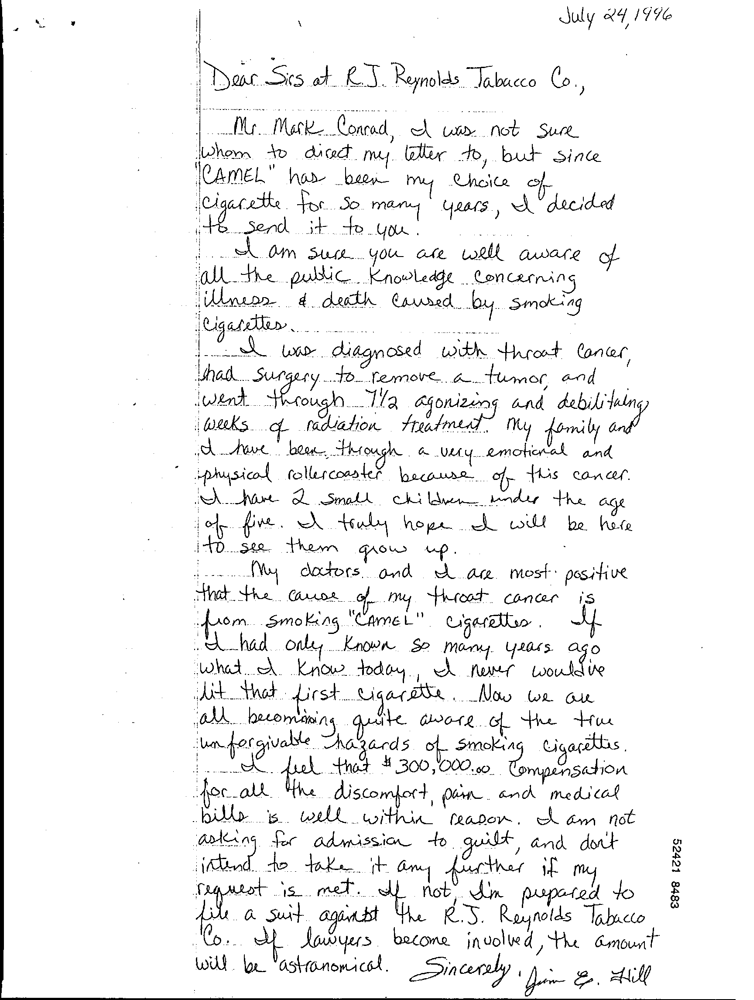 July 24, 1996
Dear Sirs at R.J. Reynolds Tabacco Co.,
Mr. Mark Conrad, I was not sure
whom to direct my letter to, but since
"CAMEL" has been my choice of
cigarette for so many years, I decided
to send it to you.
I am sure you are well aware of
all the public knowledge concerning
illness & death caused by smoking
cigarettes.
I was diagnosed with throat cancer,
had surgery to remove a tumor, and
went through 7 1/2 agonizing and debilitaing
weeks of radiation treatment. My family and
I have been through a very emotional and
physical rollercoaster because of this cancer.
I have 2 small children under the age
of five. I truly hope I will be here
to see them grow up.
My doctors and I are most positive
that the cause of my throat cancer is
from smoking "CAMEL" cigarettes. If
I had only known so many years ago
what I know today, I never would've
lit that first cigarette. Now we are
all becomining quite aware of the true
unforgivable hazards of smoking cigarettes.
I feel that $300,000.00 compensation
for all the discomfort, pain and medical
bills is well within reason. I am not
asking for admission to guilt, and don't
intend to take it any further if my
request is met. If not, I'm prepared to
file a suit against the R.J. Reynolds Tabacco
Co. If lawyers become involved, the amount
will be astranomical. Sincerely, Jim E. Hill
52421 8483